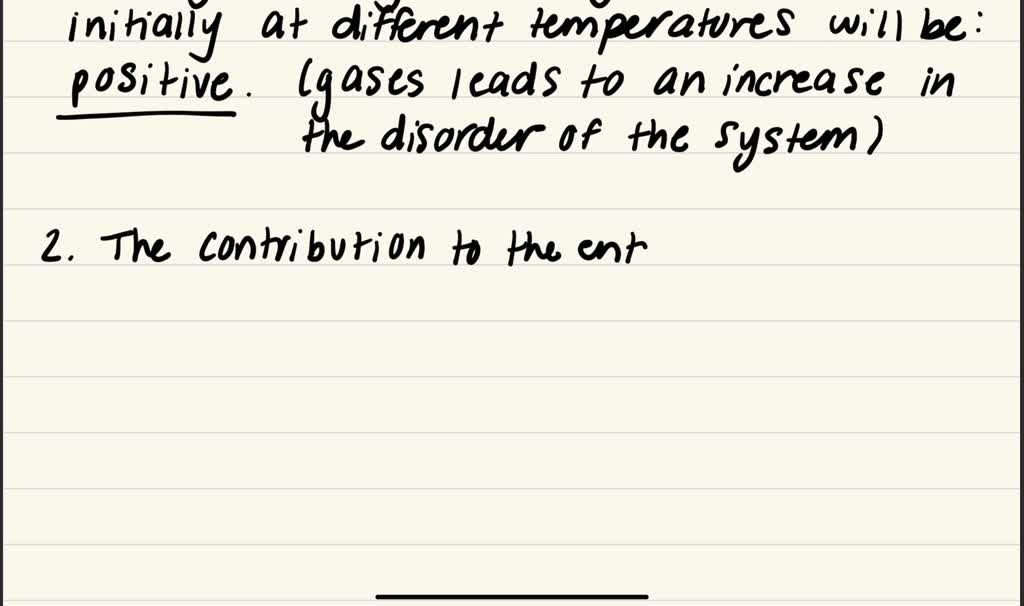 initially at different temperatures will be:
positive. (gases leads to an increase in
the disorder of the system)
2. The contribution to the ent